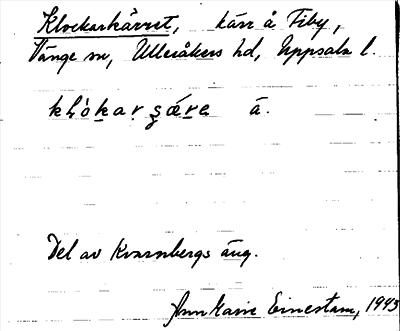 Klockarkärret, kärr å Fiby,
Vänge sn, Ulleråkers hd, Uppsala l.
kḷókarşǽre ā.
Del av Kvarnbergs äng.
AnnMarie Einestam, 1945